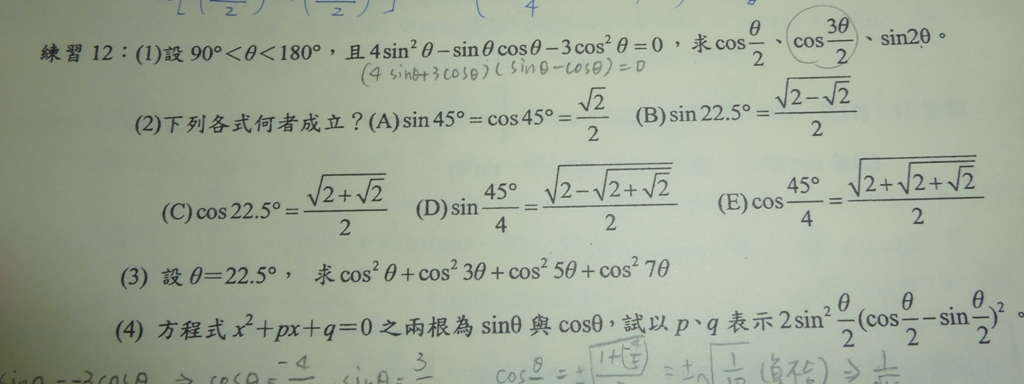 練習12：(1)設 90°<θ<180°，且 4sin²θ−sinθcosθ−3cos²θ=0，求cos θ/2、cos 3θ/2、sin2θ。
(4 sinθ+3cosθ)(sinθ-cosθ)=0
(2)下列各式何者成立？(A)sin 45°=cos 45°=√2/2 (B)sin 22.5°=√(2−√2)/2
(C)cos 22.5°=√(2+√2)/2 (D)sin 45°/4=√(2−√(2+√2))/2 (E)cos 45°/4=√(2+√(2+√2))/2
(3) 設θ=22.5°， 求cos²θ+cos²3θ+cos²5θ+cos²7θ
(4) 方程式x²+px+q=0之兩根為sinθ與cosθ，試以p、q表示2sin² θ/2(cos θ/2−sin θ/2)²。
⇒ cosθ=-4 sinθ=3 cos θ/2=±